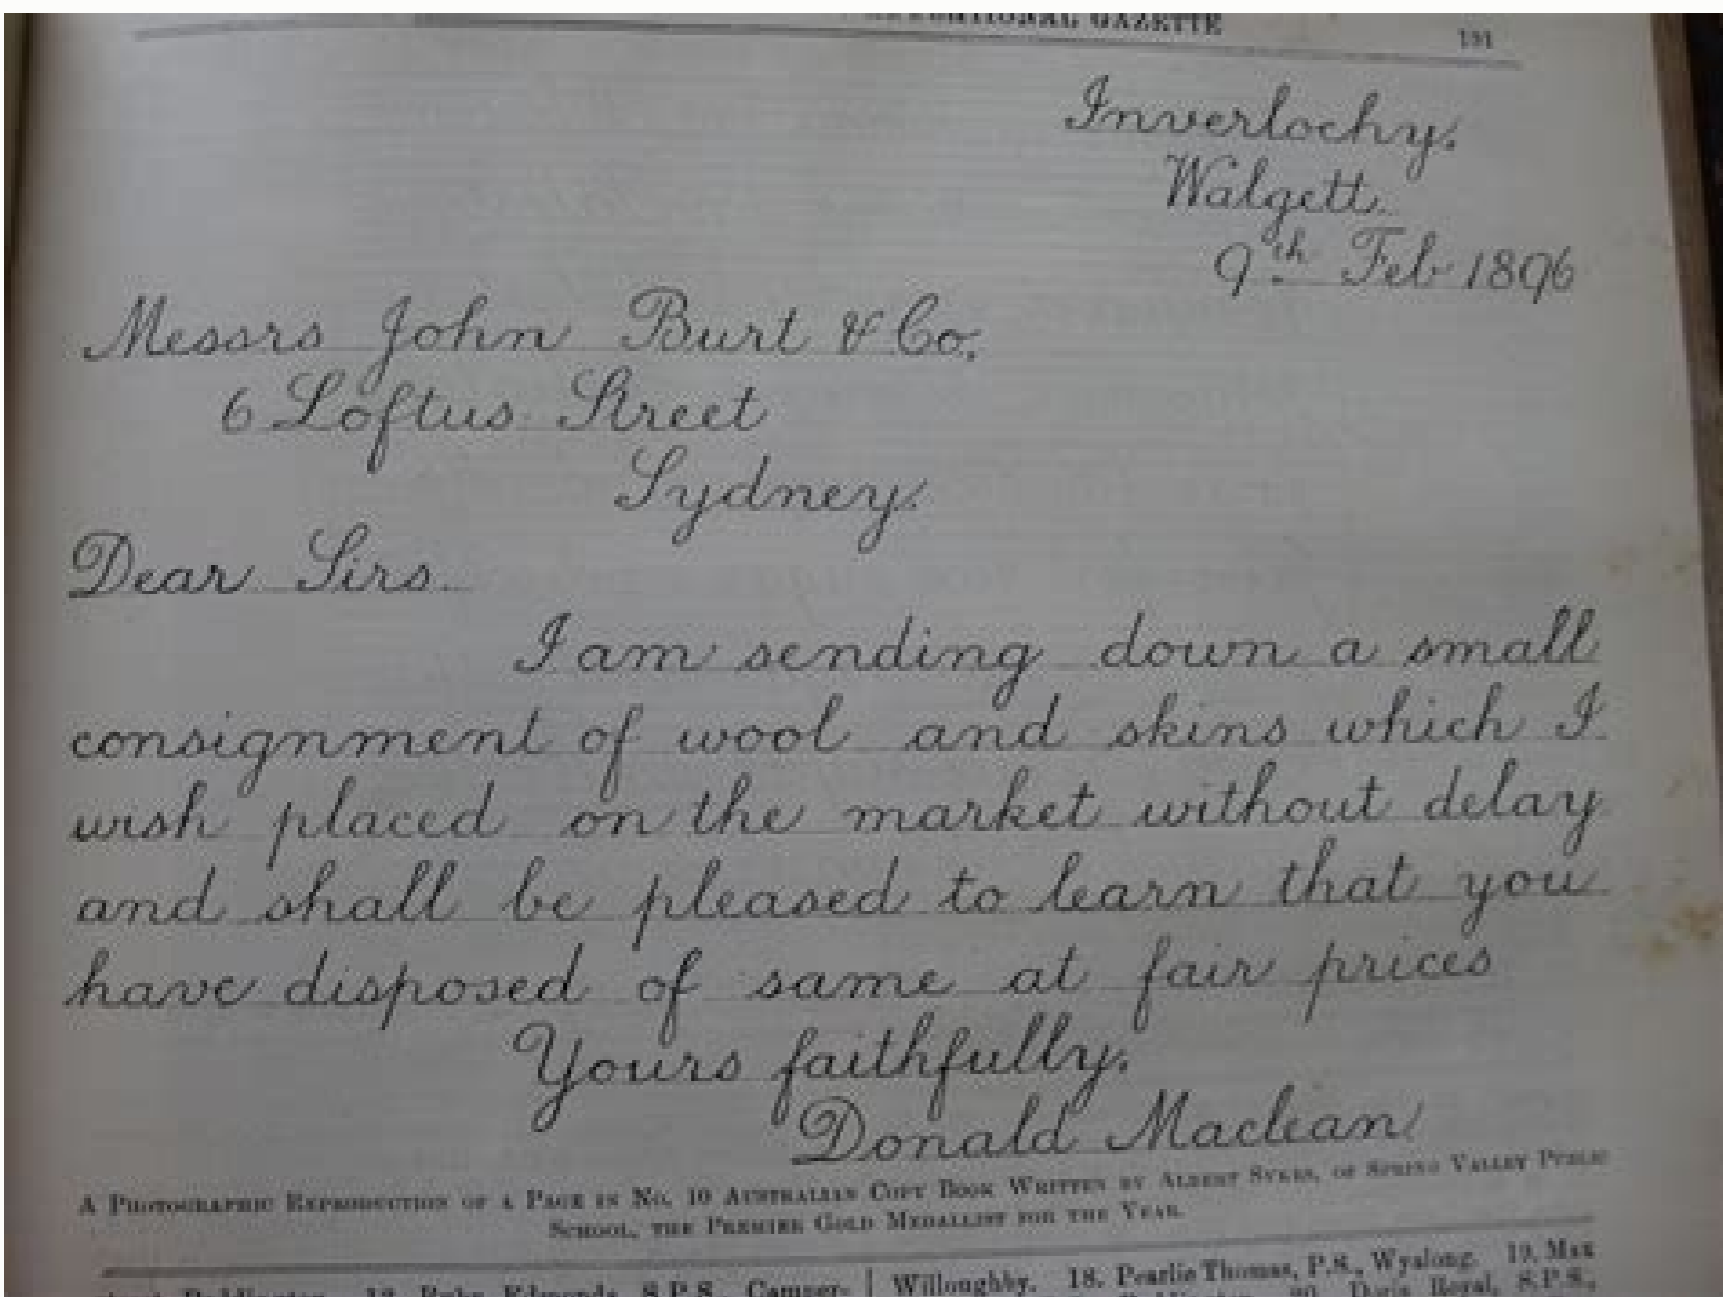 GAZETTE
191
Inverlochy.
Walgett.
9th Feb 1896
Messrs John Burt & Co.
6 Loftus Street
Sydney.
Dear Sirs
I am sending down a small
consignment of wool and skins which I
wish placed on the market without delay
and shall be pleased to learn that you
have disposed of same at fair prices
Yours faithfully.
Donald Maclean
A PHOTOGRAPHIC REPRODUCTION OF A PAGE IN NO. 10 AUSTRALIAN COPY BOOK WRITTEN BY ALBERT SYKES, OF SPRING VALLEY PUBLIC
SCHOOL, THE PREMIER GOLD MEDALLIST FOR THE YEAR.
Edmonds, S.P.S., Camper-
Willoughby. 18. Pearlie Thomas, P.S., Wyalong. 19. Max
Doris Royal, S.P.S.,